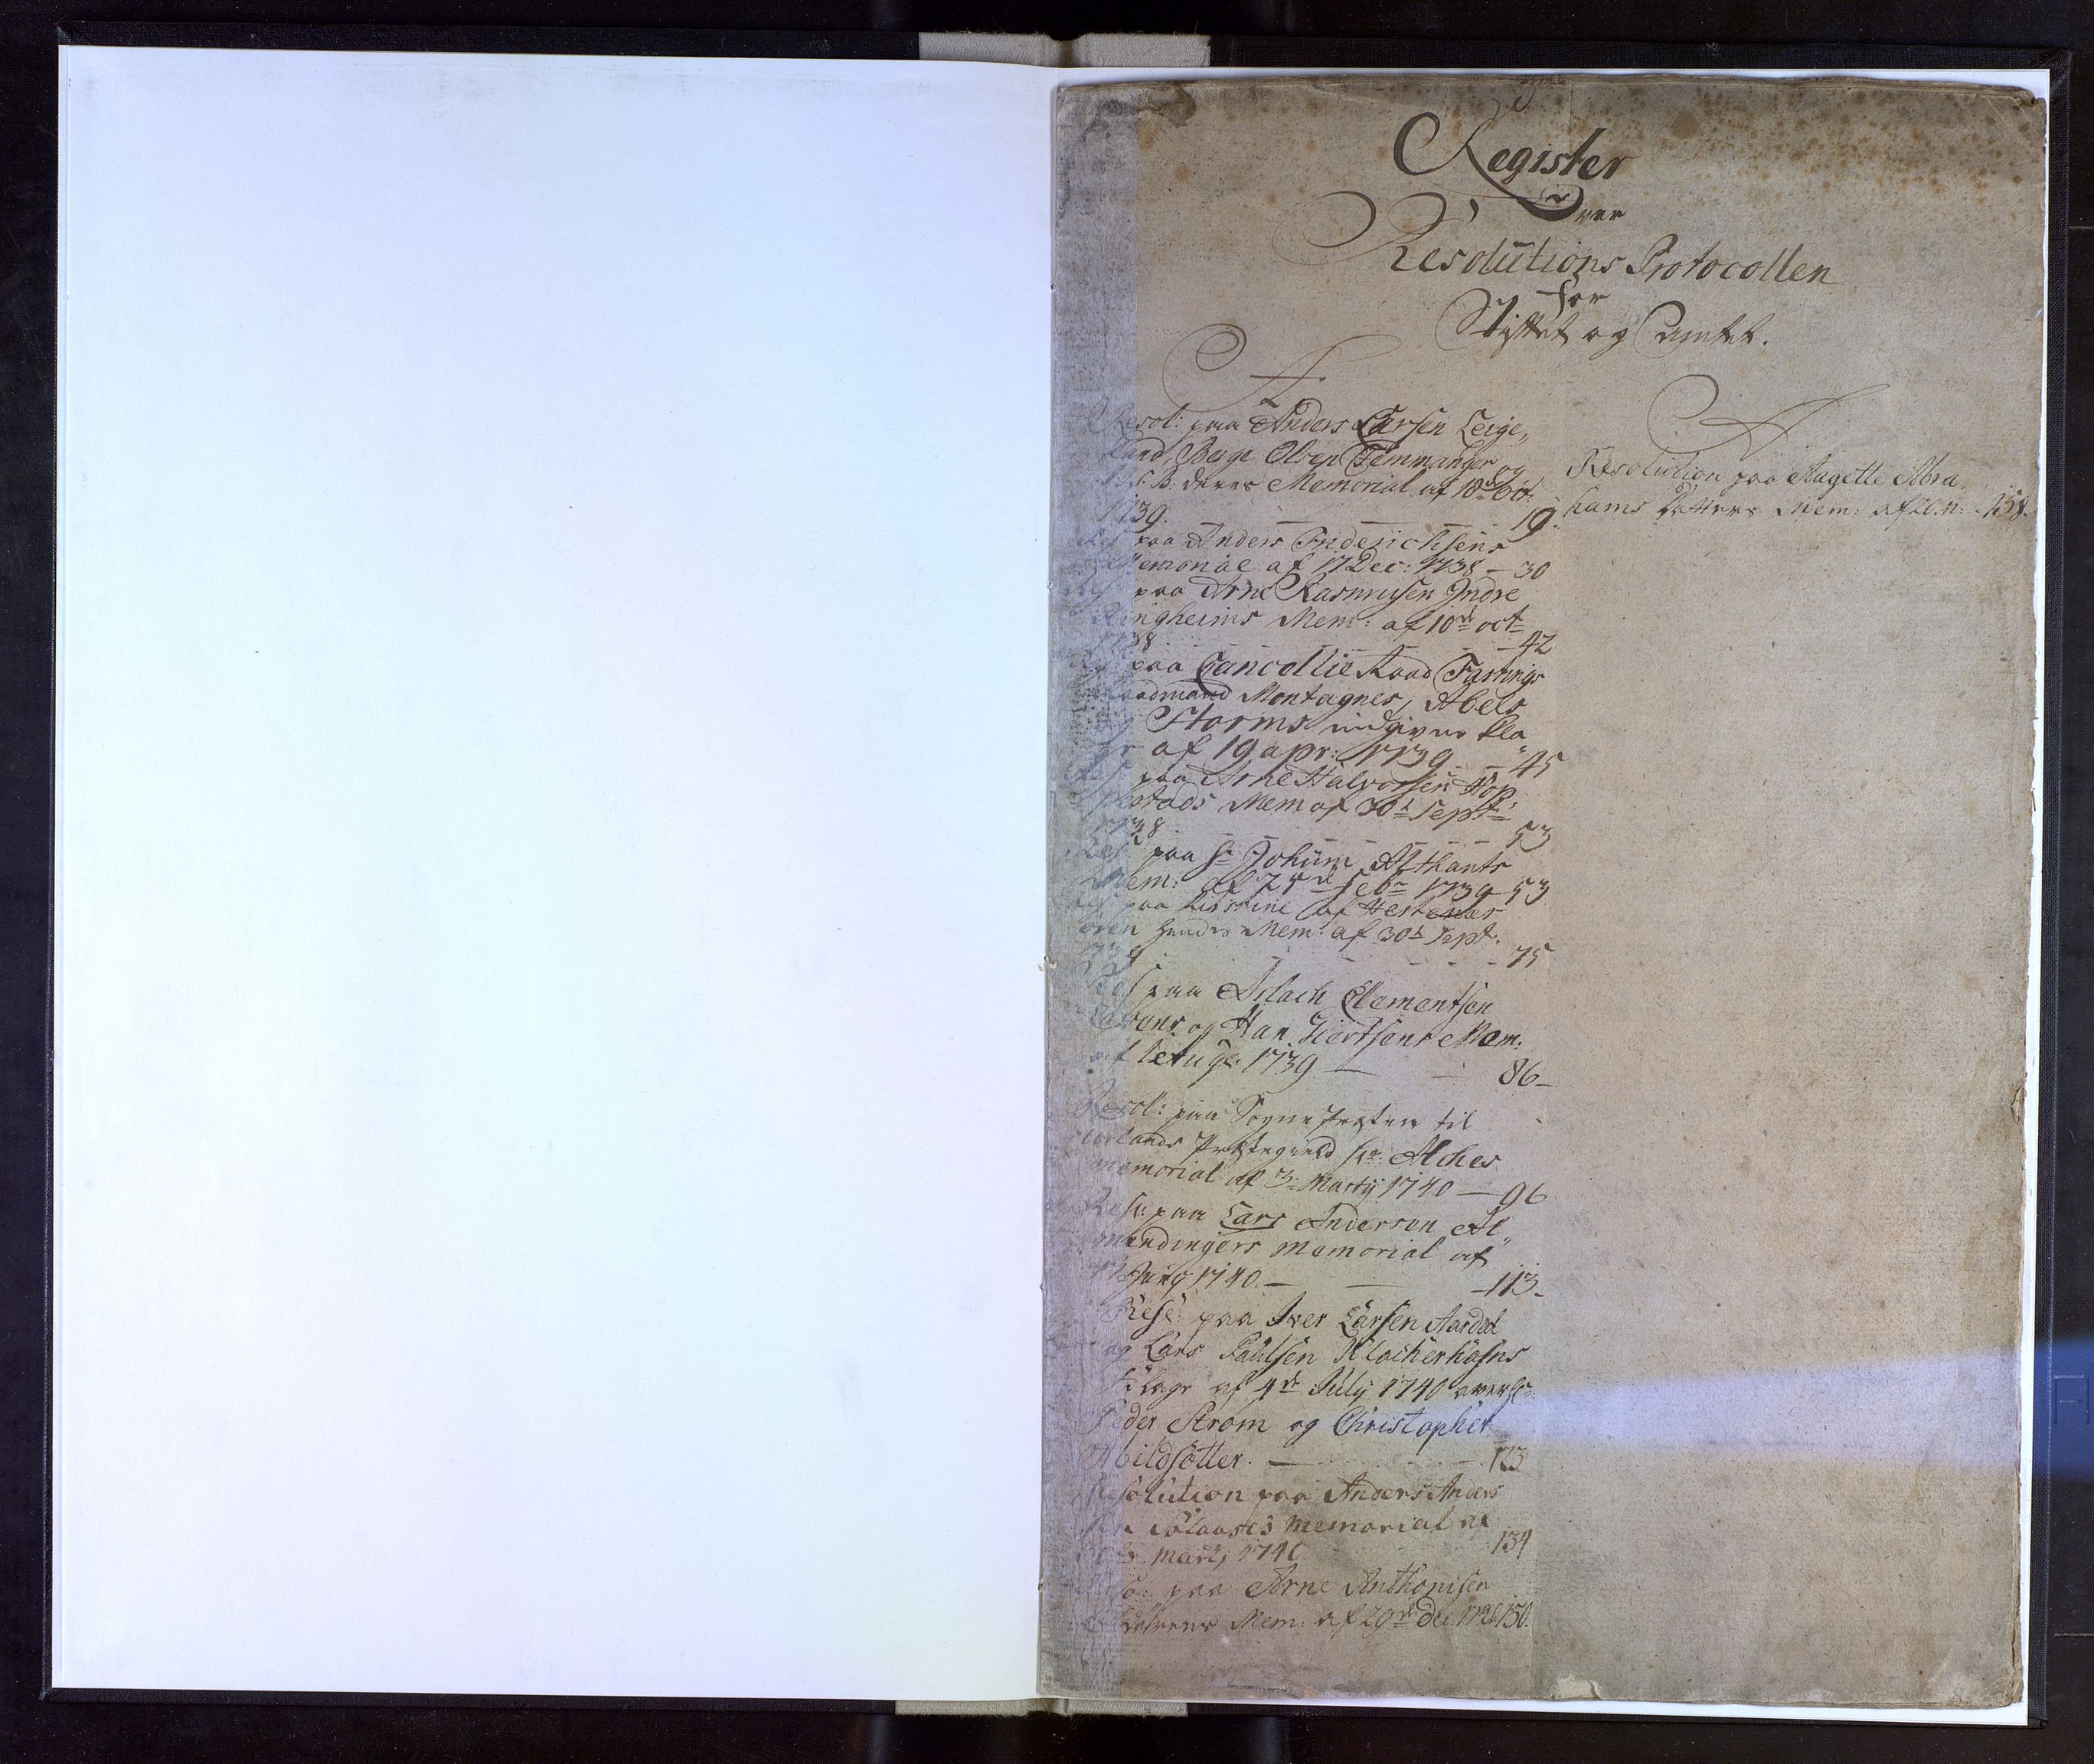 Register
Over
Resolutions Protocollen
for
Stiftet og Amtet.
A
Resol: paa Anders Larsen Leige„
land, Børge Olsen Femmanger og
S: S: B: deres Memorial af 18d Oct:
1739. — — — 19.
Res paa Anders Friderichsens
Memorial af 17 Dec: 1738 — 30
Res paa Arne Rasmusen Indre
Ringheims Mem: af 10d oct
1738 — — — 42
Res: paa Cancellie Raad Fastings
Raadmand Montagnes, Abels
og Storms indgivne Kla
ge af 19 apr: 1739 — 45
Res: paa Arne Halvorsen Hop
pestads Mem af 30d Sept:
1738 — — — 53
Res: paa Sr Johum Althants
Mem: af 25d Febr 1739 — 53
Res paa af
hendes Mem: af 30d Sept:
1739 — — — 75
Res paa Aslach Clementsen
og Han Mem:
af 1739 — — 86 —
Resol: paa Sogne Præsten til
Urlands Præstegield Hr: Alches
memorial af 3 Martij 1740 — 96
Res: paa Lars Andersen Al„
mendingers memorial af
17 Junij 1740 — — 113 —
Rese: paa Iver Larsen Aardal
og Lars Paulsen Klocherhafns
Klage af 4de Julij 1740 over Sr
Peder Strøm og Christopher
— — 123
Resolution paa Anders Anders
sen memorial af
Marti 1740 — 134
Reso: paa Arne Anthonisen
Mem: af 29de Dec 1740 150.
A
Resolution paa Aagette Abra
hams Datters Mem: af 20. n: — 158.